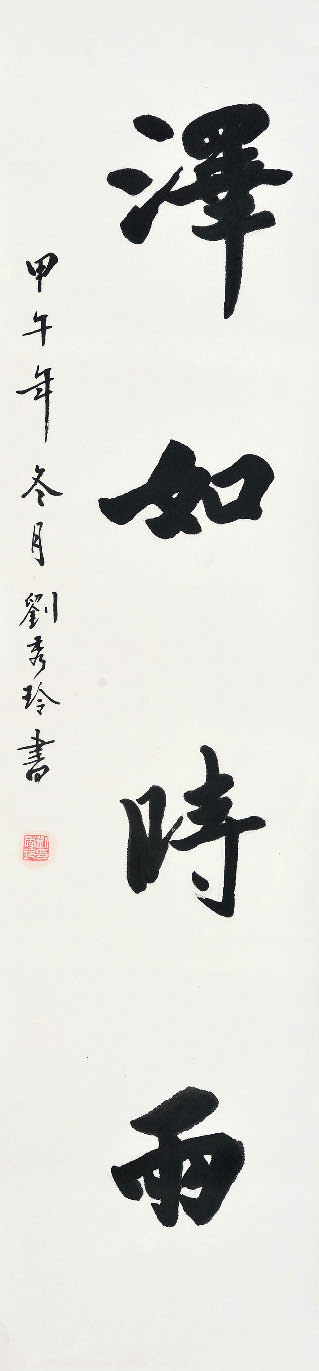 澤如時雨
甲午年冬月劉秀玲書